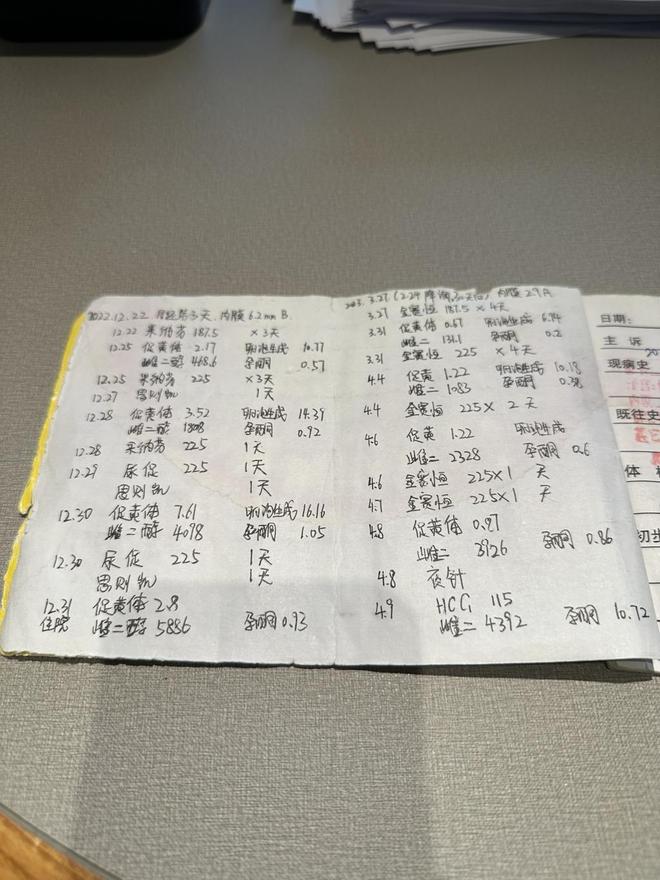 2022.12.22 月经第3天 内膜6.2mm B
12.22 果纳芬 187.5 ×3天
12.25 促黄体 2.17 卵泡生成 10.77
雌二醇 468.6 孕酮 0.57
12.25 果纳芬 225 ×3天
12.27 思则凯 1天
12.28 促黄体 3.52 卵泡生成 14.39
雌二醇 1808 孕酮 0.92
12.28 果纳芬 225 1天
12.29 尿促 225 1天
思则凯 1天
12.30 促黄体 7.61 卵泡生成 16.16
雌二醇 4098 孕酮 1.05
12.30 尿促 225 1天
思则凯 1天
12.31 促黄体 2.8
住院 雌二醇 5886 孕酮 0.93
3.27 (2.24 降调 30天后) 内膜 2.9
3.27 金赛恒 187.5 × 4天
3.31 促黄体 0.67 卵泡生成 6.94
雌二 134.1 孕酮 0.2
3.31 金赛恒 225 × 4天
4.4 促黄 1.22 卵泡生成 10.18
雌二 1083 孕酮 0.38
4.4 金赛恒 225 × 2天
4.6 促黄 1.22 卵泡生成
雌二 2328 孕酮 0.6
4.6 金赛恒 225×1 天
4.7 金赛恒 225×1 天
4.8 促黄体 0.97
雌二 3926 孕酮 0.86
4.8 夜针
4.9 HCG 115
雌二 4392 孕酮 10.72
日期:
主诉
现病史
既往史
体
初步